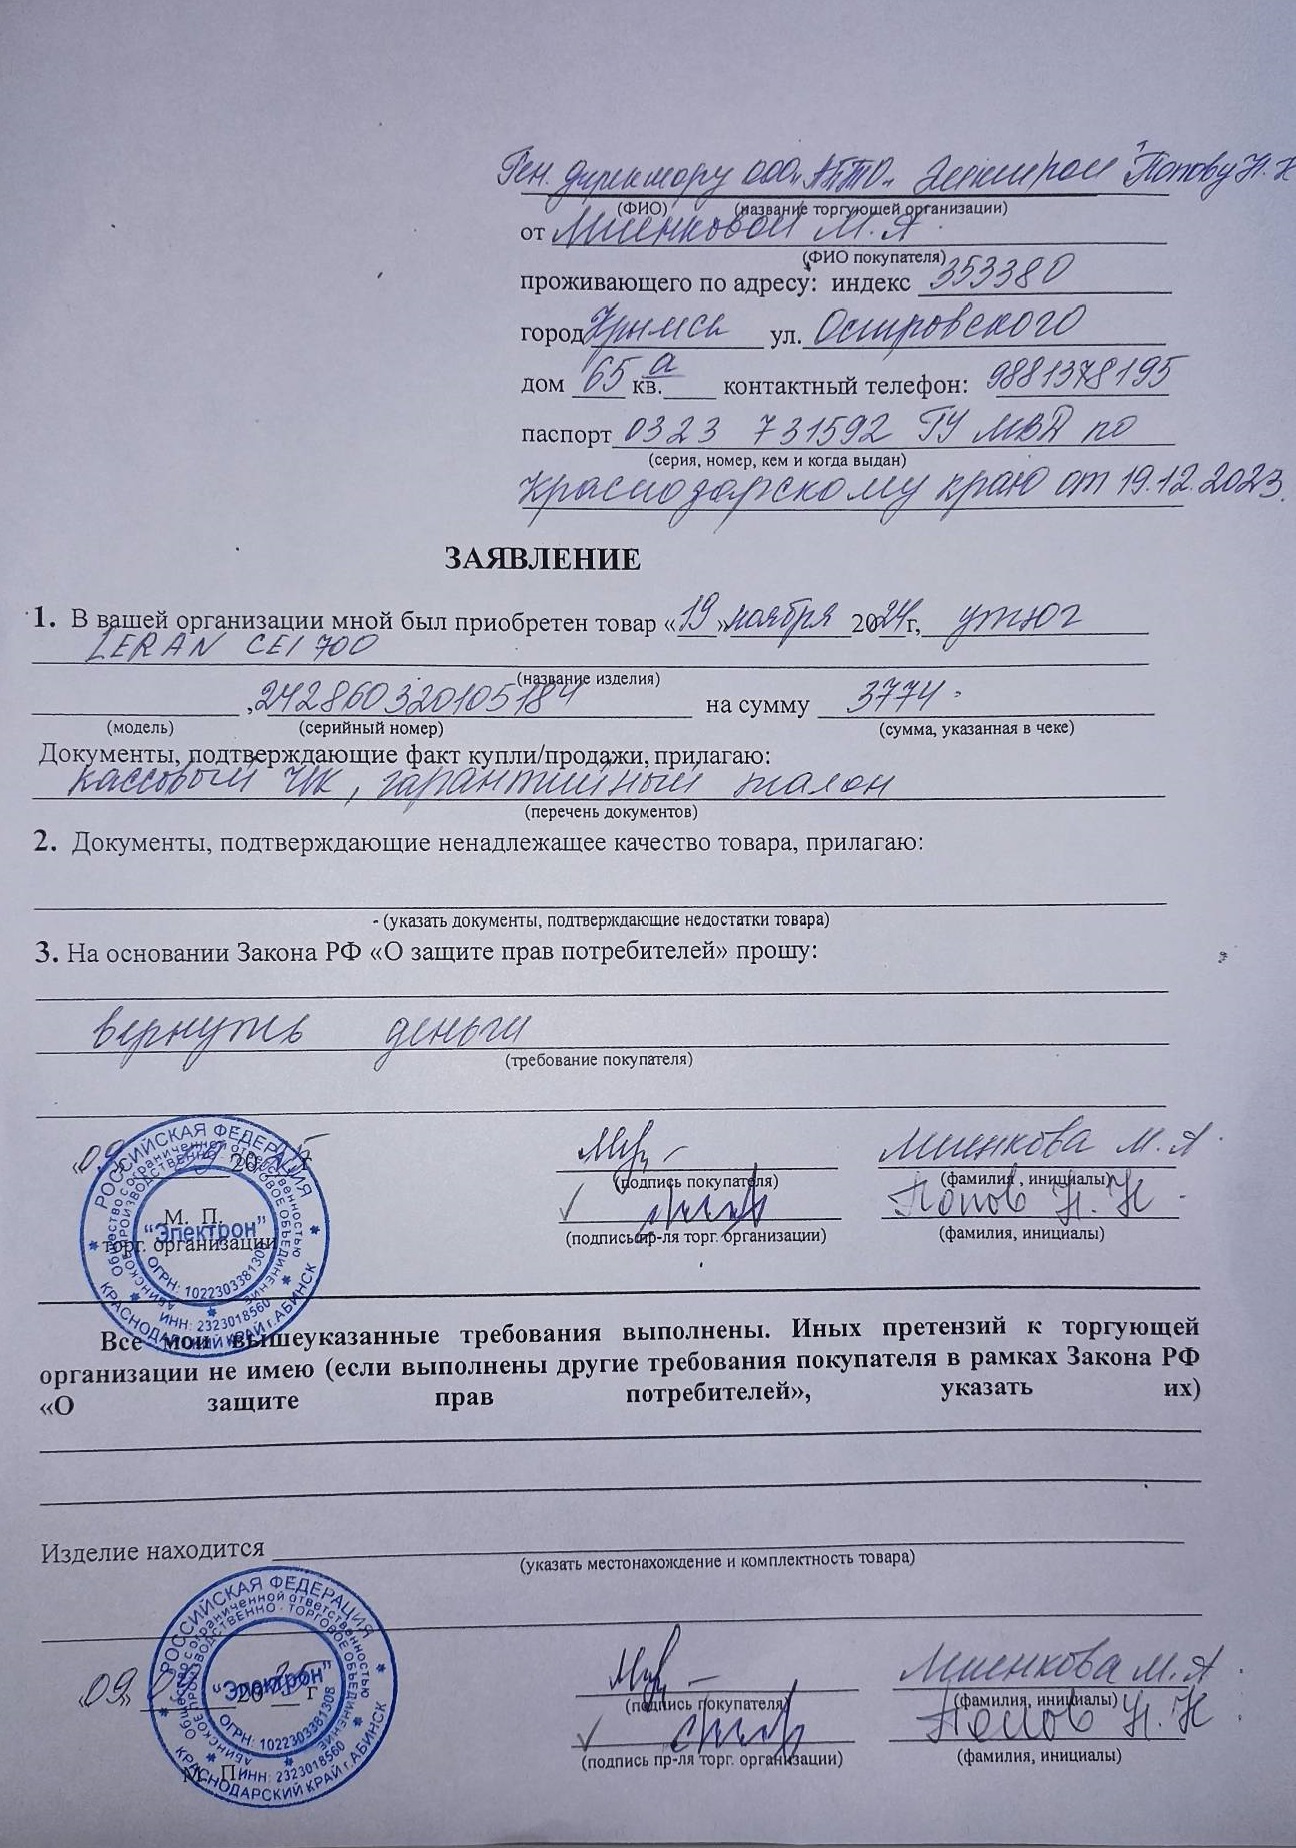 Ген. директору ООО „АПТО„ Электрон" Попову Н. Н
(ФИО) (название торгующей организации)
от Миенковой М. А.
(ФИО покупателя)
проживающего по адресу: индекс 353380
город Крымск ул. Островского
дом 65 а кв. контактный телефон: 9881378195
паспорт 0323 731592 ГУ МВД по
(серия, номер, кем и когда выдан)
Краснодарскому краю от 19.12.2023.
ЗАЯВЛЕНИЕ
1. В вашей организации мной был приобретен товар «19» ноября 2024г, утюг
LERAN CEI 700
(название изделия)
, 242860320105184 на сумму 3774-
(модель) (серийный номер) (сумма, указанная в чеке)
Документы, подтверждающие факт купли/продажи, прилагаю:
кассовый чек, гарантийный талон
(перечень документов)
2. Документы, подтверждающие ненадлежащее качество товара, прилагаю:
- (указать документы, подтверждающие недостатки товара)
3. На основании Закона РФ «О защите прав потребителей» прошу:
вернуть деньги
(требование покупателя)
«09 2025 г Миенкова М. А.
(подпись покупателя) (фамилия, инициалы)
Попов Н. Н.
М. П.
торг. организации
(подпись пр-ля торг. организации) (фамилия, инициалы)
РОССИЙСКАЯ ФЕДЕРАЦИЯ
Общество с ограниченной ответственностью
АБИНСКОЕ ПРОИЗВОДСТВЕННО - ТОРГОВОЕ ОБЪЕДИНЕНИЕ
"Электрон"
ОГРН: 1022303381308
ИНН: 2323018560
КРАСНОДАРСКИЙ КРАЙ г. АБИНСК
Все мои вышеуказанные требования выполнены. Иных претензий к торгующей
организации не имею (если выполнены другие требования покупателя в рамках Закона РФ
«О защите прав потребителей», указать их)
Изделие находится
(указать местонахождение и комплектность товара)
«09» 2025 г Миенкова М. А.
(подпись покупателя) (фамилия, инициалы)
Попов Н. Н
(подпись пр-ля торг. организации) (фамилия, инициалы)
М. П.
РОССИЙСКАЯ ФЕДЕРАЦИЯ
Общество с ограниченной ответственностью
АБИНСКОЕ ПРОИЗВОДСТВЕННО - ТОРГОВОЕ ОБЪЕДИНЕНИЕ
"Электрон"
ОГРН: 1022303381308
ИНН: 2323018560
КРАСНОДАРСКИЙ КРАЙ г. АБИНСК